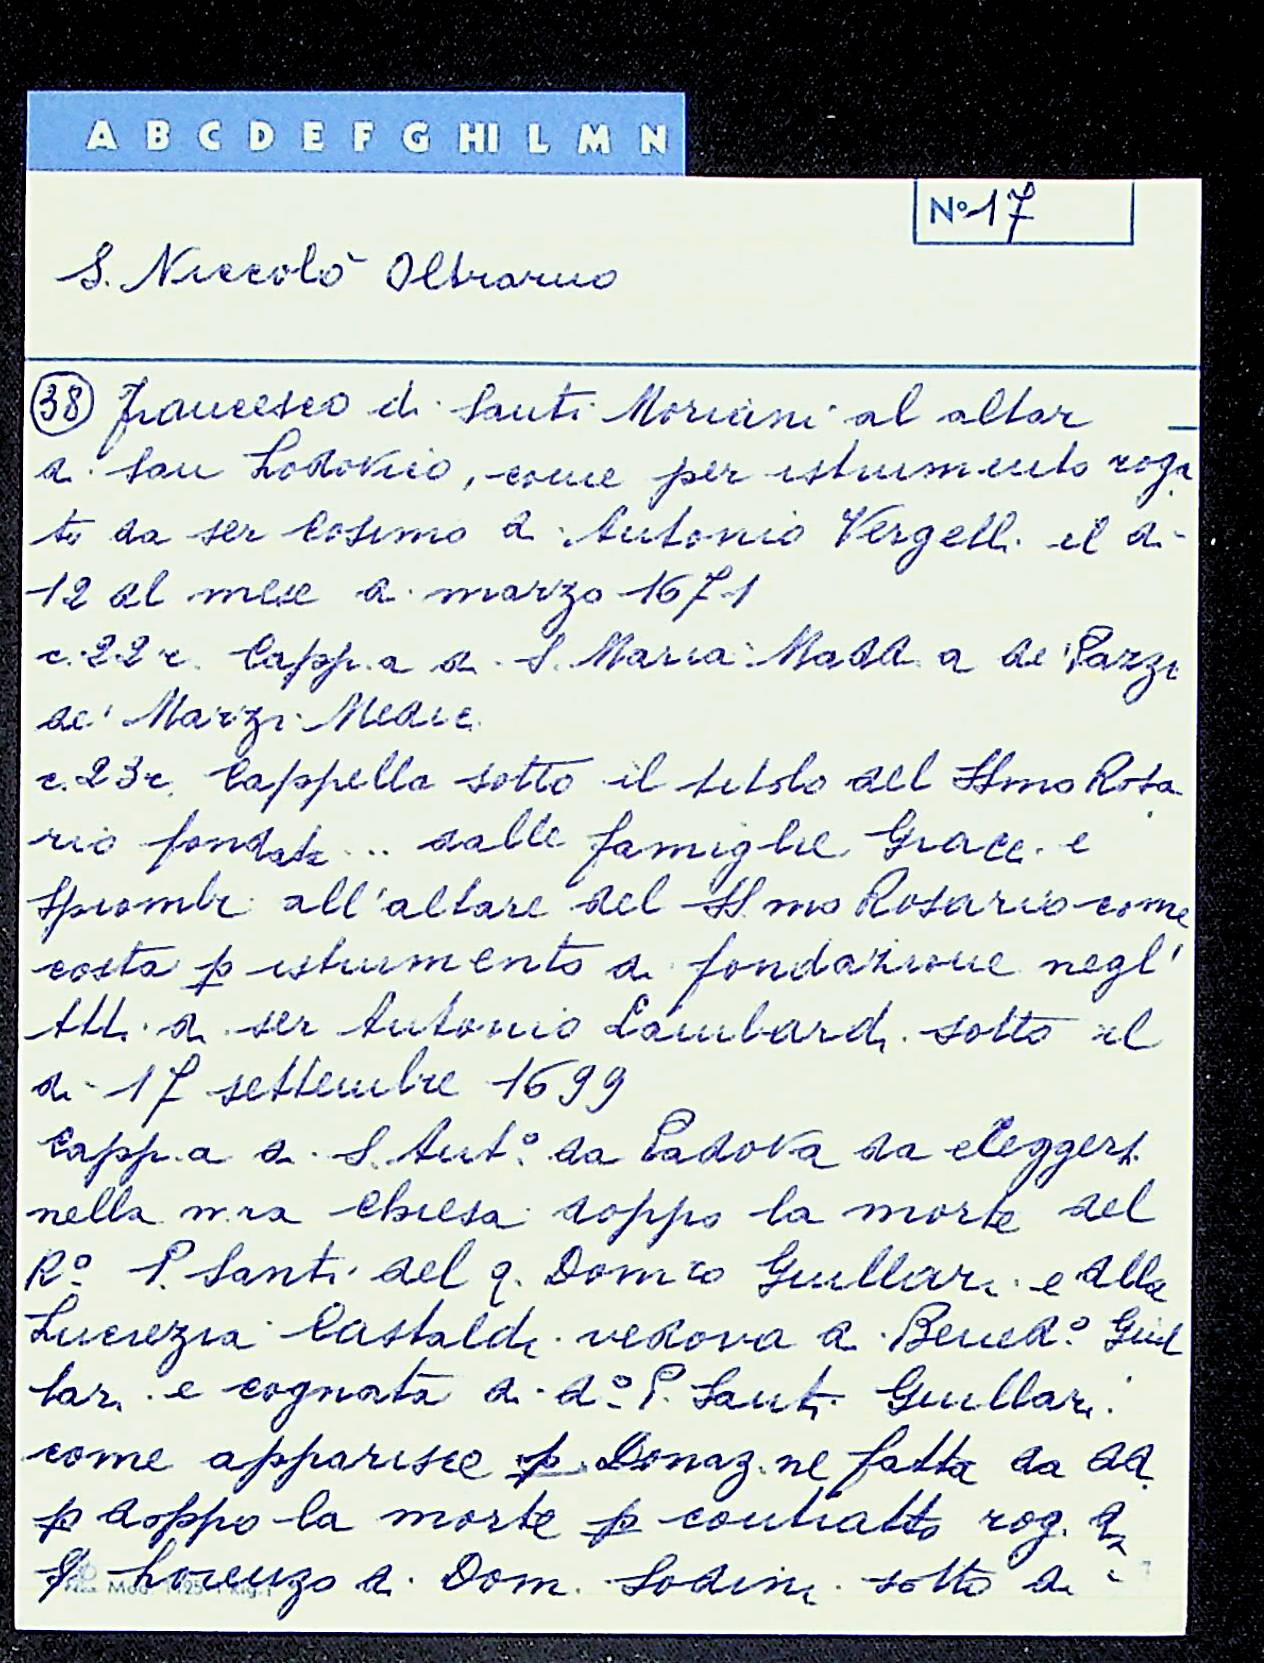 A B C D E F G HI L M N
N° 17
S. Niccolò Oltrarno
38 Francesco di Santi Moriani al altar
di San Lodovico, come per istrumento roga
to da ser Cosimo di Antonio Vergelli il di
12 al mese di marzo 1671
c. 22 r. Capp.a di S. Maria Madd.a de' Pazzi
de' Marzi Medic.
c. 23 r. Cappella sotto il titolo del SSmo Rosa
rio fondata ... dalle famiglie Gracci e
Spiombi all'altare del SSmo Rosario come
costa p istrumento di fondazione negl'
Atti di ser Antonio Lambardi sotto il
di 17 settembre 1699
Capp.a di S. Ant° da Padova da eleggersi
nella n.ra Chiesa doppo la morte del
R° P. Santi del q. Dom co Guillari e della
Lucrezia Castaldi vedova di Bened° Guil
lari e cognata di d° P. Santi Guillari
come apparisce p Donaz.ne fatta da dd.
p doppo la morte p contratto rog.
Lorenzo di Dom. Sodini sotto di